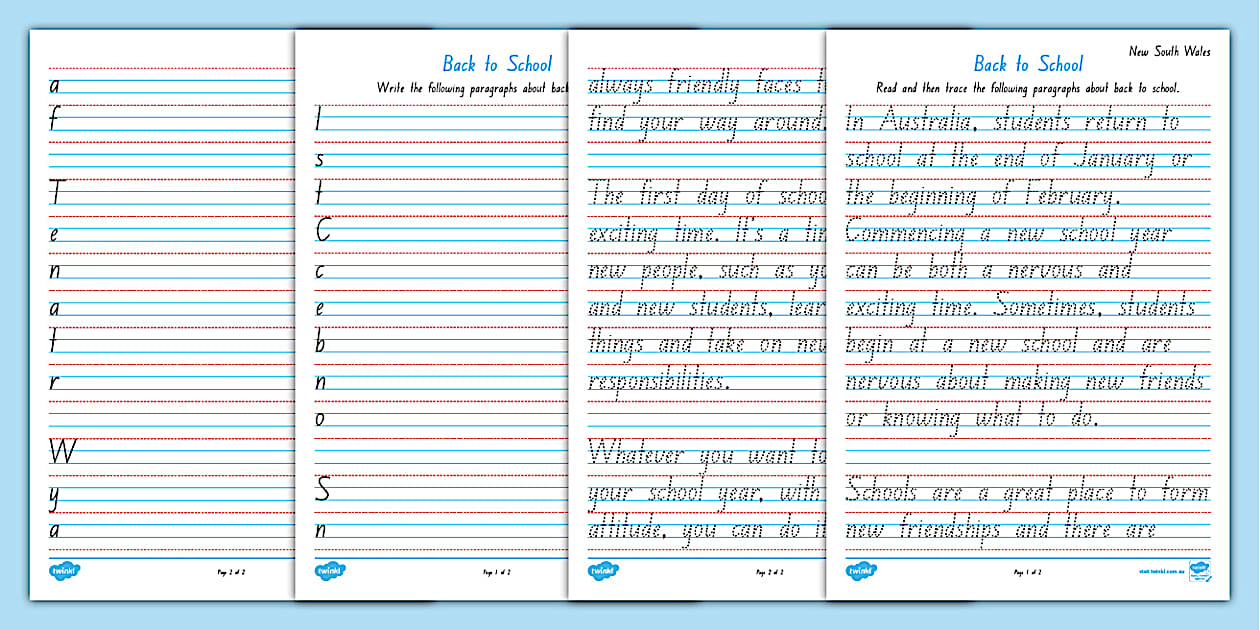 a
f
T
e
n
a
t
r
W
y
a
twinkl
Page 2 of 2
Back to School
Write the following paragraphs about back
I
s
t
C
c
e
b
n
o
S
n
twinkl
Page 1 of 2
always friendly faces
find your way around.
The first day of
exciting time. It's a
new people, such as
and new students,
things and take on new
responsibilities.
Whatever you want
your school year, with
attitude, you can do
twinkl
Page 2 of 2
New South Wales
Back to School
Read and then trace the following paragraphs about back to school.
In Australia, students return to
school at the end of January or
the beginning of February.
Commencing a new school year
can be both a nervous and
exciting time. Sometimes, students
begin at a new school and are
nervous about making new friends
or knowing what to do.
Schools are a great place to form
new friendships and there are
twinkl
Page 1 of 2
visit twinkl.com.au
twinkl